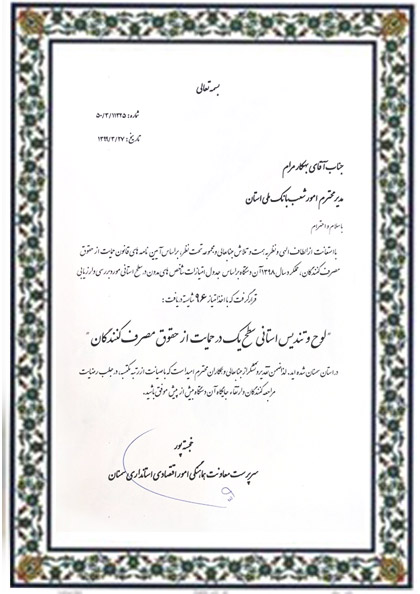 بسمه تعالی
شماره: ۵۰/۳/۱۱۲۲۵
تاریخ: ۱۳۹۹/۳/۲۷
جناب آقای بهکار مرام
مدیر محترم امور شعب بانک ملی استان
با سلام و احترام
با استعانت از الطاف الهی و نظر به همت و تلاش جنابعالی و مجموعه تحت نظر، بر اساس آیین نامه های قانون حمایت از حقوق
مصرف کنندگان، عملکرد سال ۱۳۹۸ آن دستگاه بر اساس جدول امتیازات شاخص های مدون در سطح استانی مورد بررسی و ارزیابی
قرار گرفت که با اخذ امتیاز ۹۶ شایسته دریافت:
"لوح و تندیس استانی سطح یک در حمایت از حقوق مصرف کنندگان"
در استان سمنان شده اید. لذا ضمن تقدیر و تشکر از جنابعالی و همکاران محترم امید است که با صیانت از رتبه مکتسبه، در جلب رضایت
مراجعه کنندگان و ارتقاء جایگاه آن دستگاه بیش از پیش موفق باشید.
خجسته پور
سرپرست معاونت هماهنگی امور اقتصادی استانداری سمنان